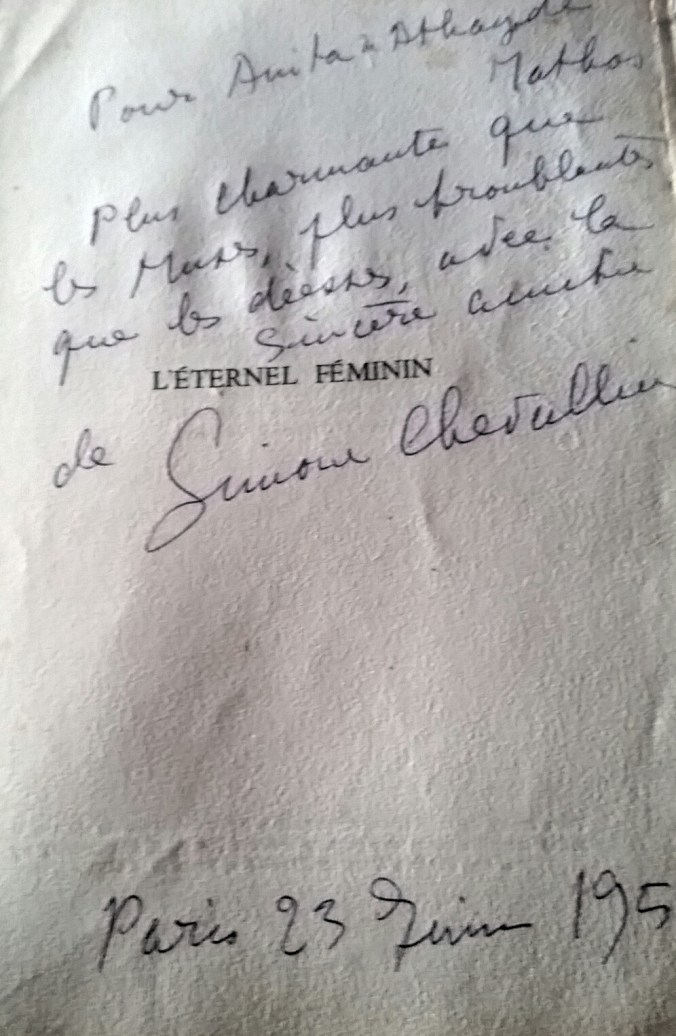 Pour Anita d'Athayde
Mathos
Plus charmante que
les Muses, plus troublante
que les déesses, avec la
sincère amitié
L'ÉTERNEL FÉMININ
de Simone Chevallier
Paris 23 195